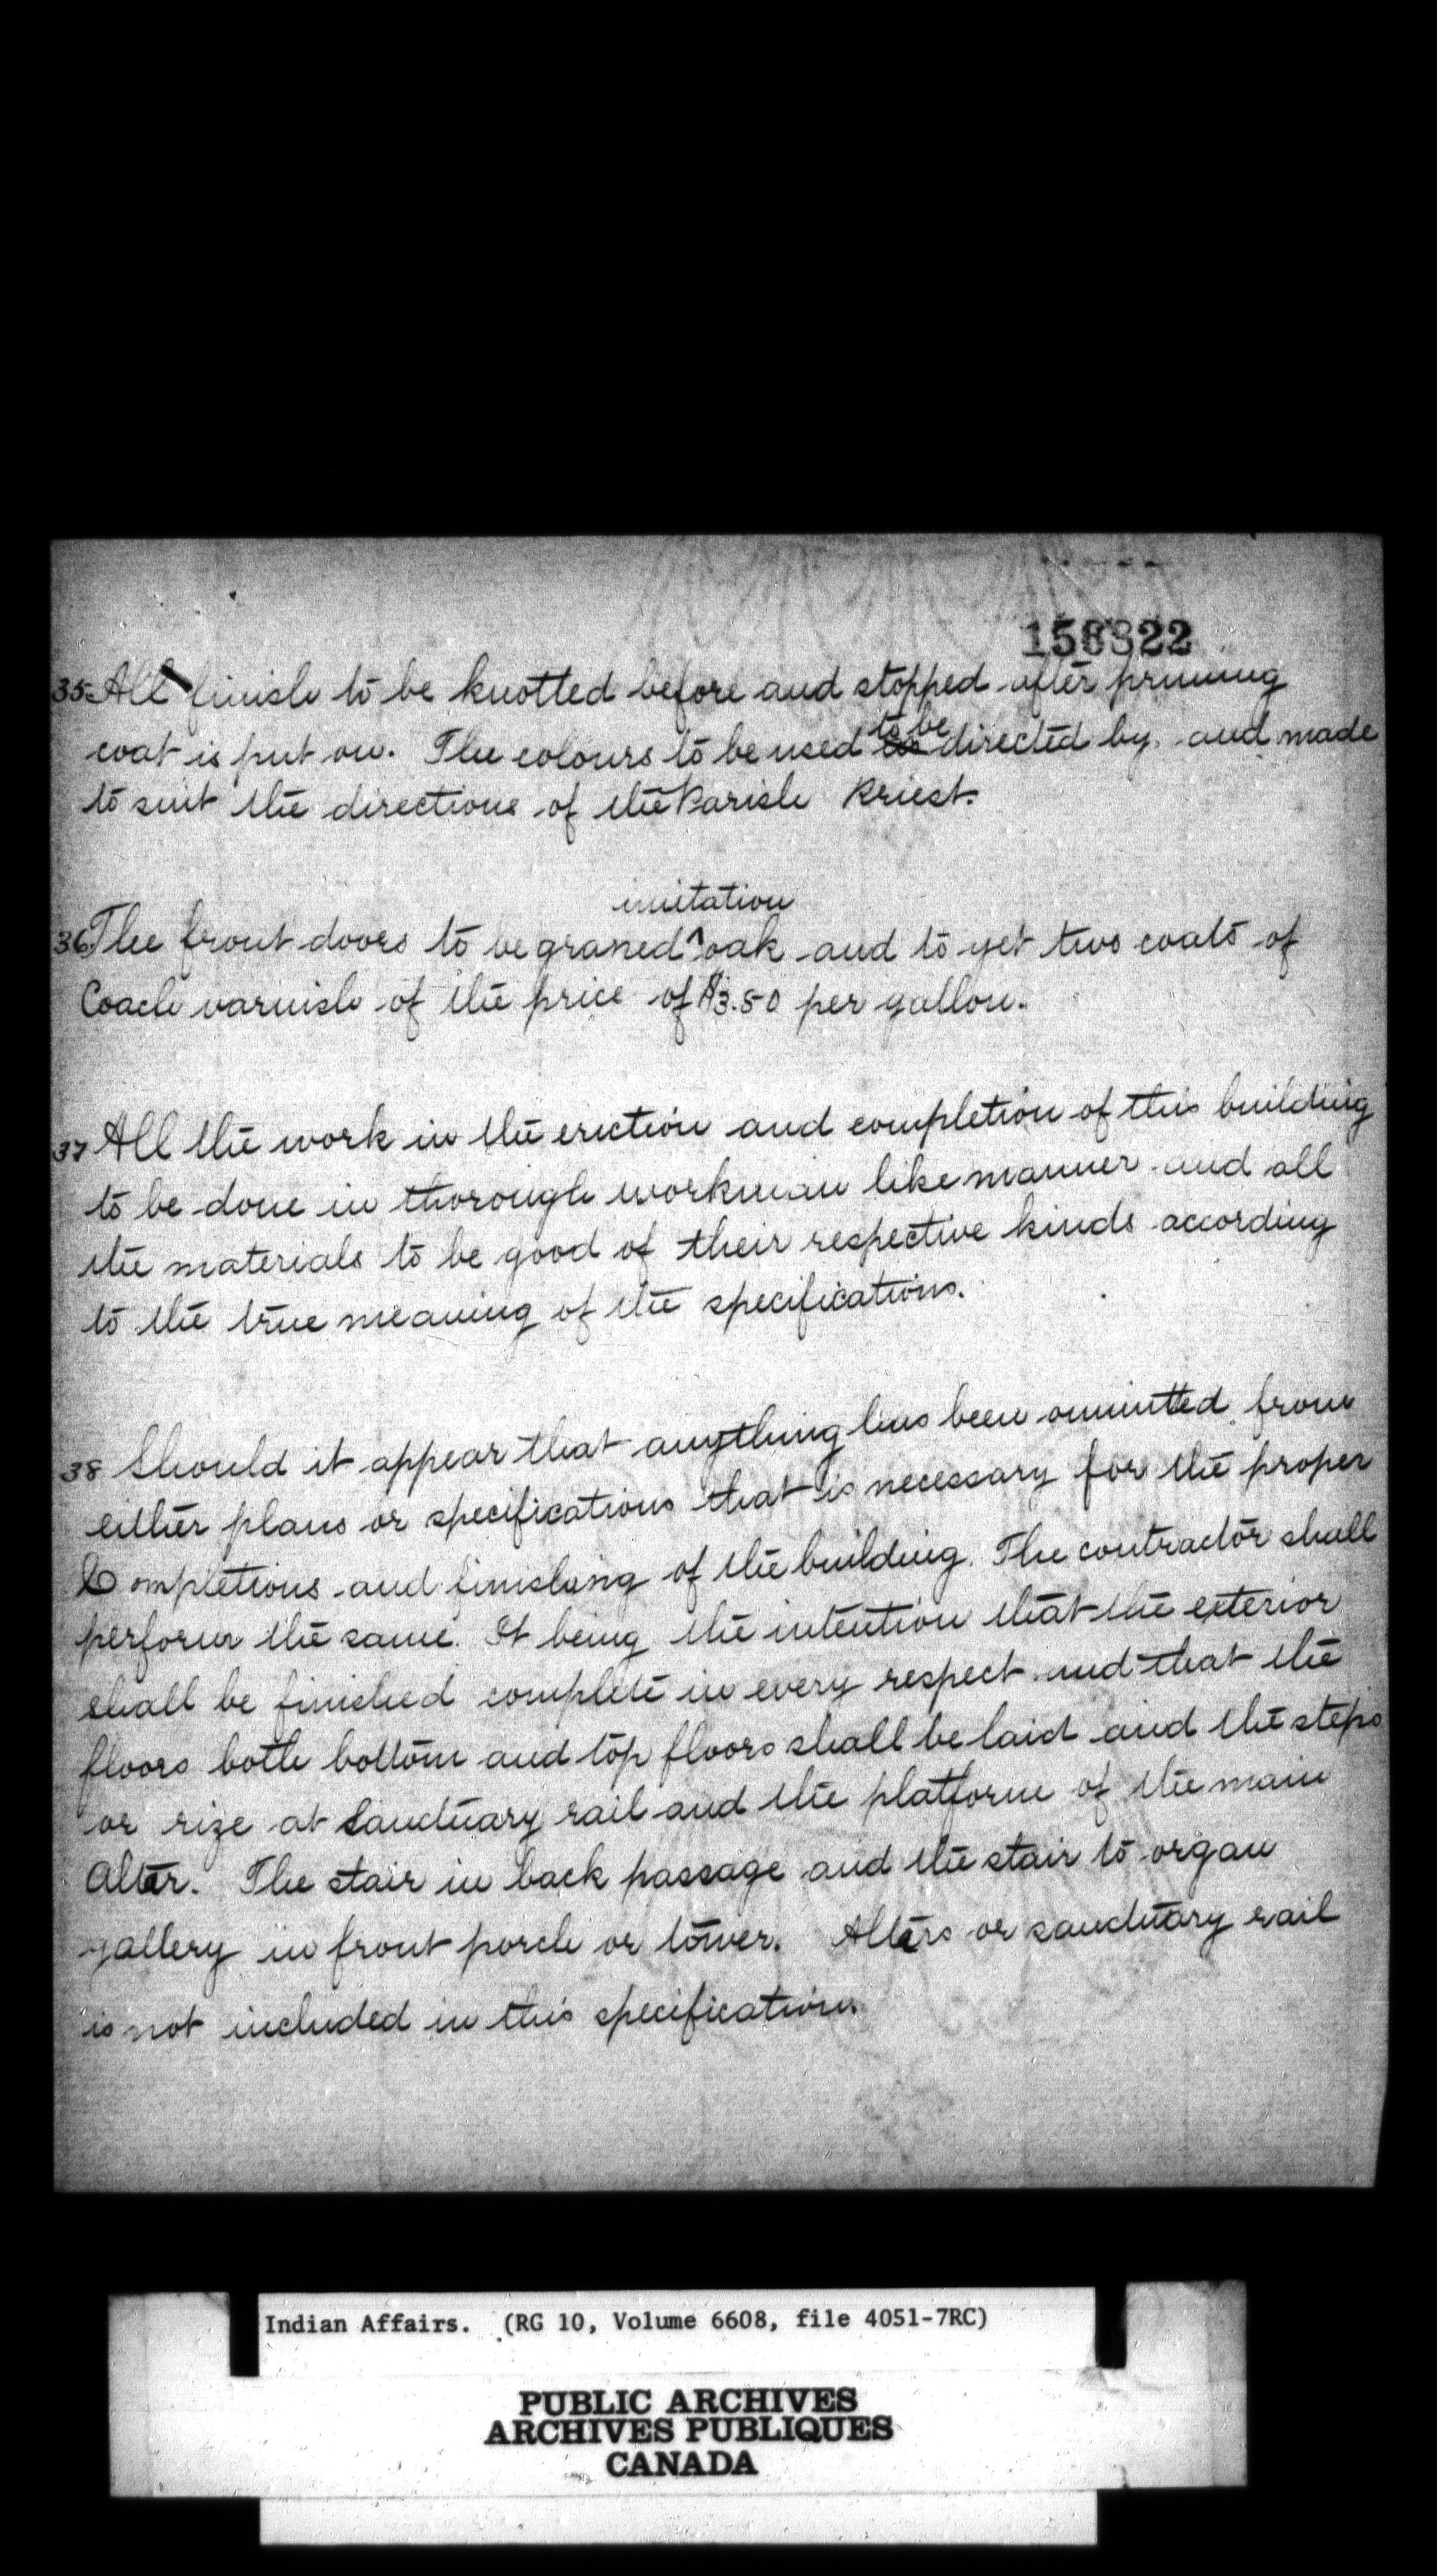 158322
35 All finish to be knotted before and stopped after priming
coat is put on. The colours to be used to be directed by and made
to suit the directions of the Parish Priest.
imitation
36 The front doors to be graned ^ oak and to get two coats of
Coach varnish of the price of $3.50 per gallon.
37 All the work in the eriction and completion of this building
to be done in thorough workman like manner and all
the materials to be good of their respective kinds according
to the true meaning of the specifications.
38 Should it appear that anything has been ommitted from
either plans or specifications that is necessary for the proper
Completions and finishing of the building. The contractor shall
perform the same. It being the intention that the exterior
shall be finished complete in every respect and that the
floors both bottom and top floors shall be laid and the steps
or rize at Sanctuary rail and the platform of the main
Alter. The stair in back passage and the stair to organ
gallery in front porch or tower. Alters or sanctuary rail
is not included in this specification.
Indian Affairs. (RG 10, Volume 6608, file 4051-7RC)
PUBLIC ARCHIVES
ARCHIVES PUBLIQUES
CANADA